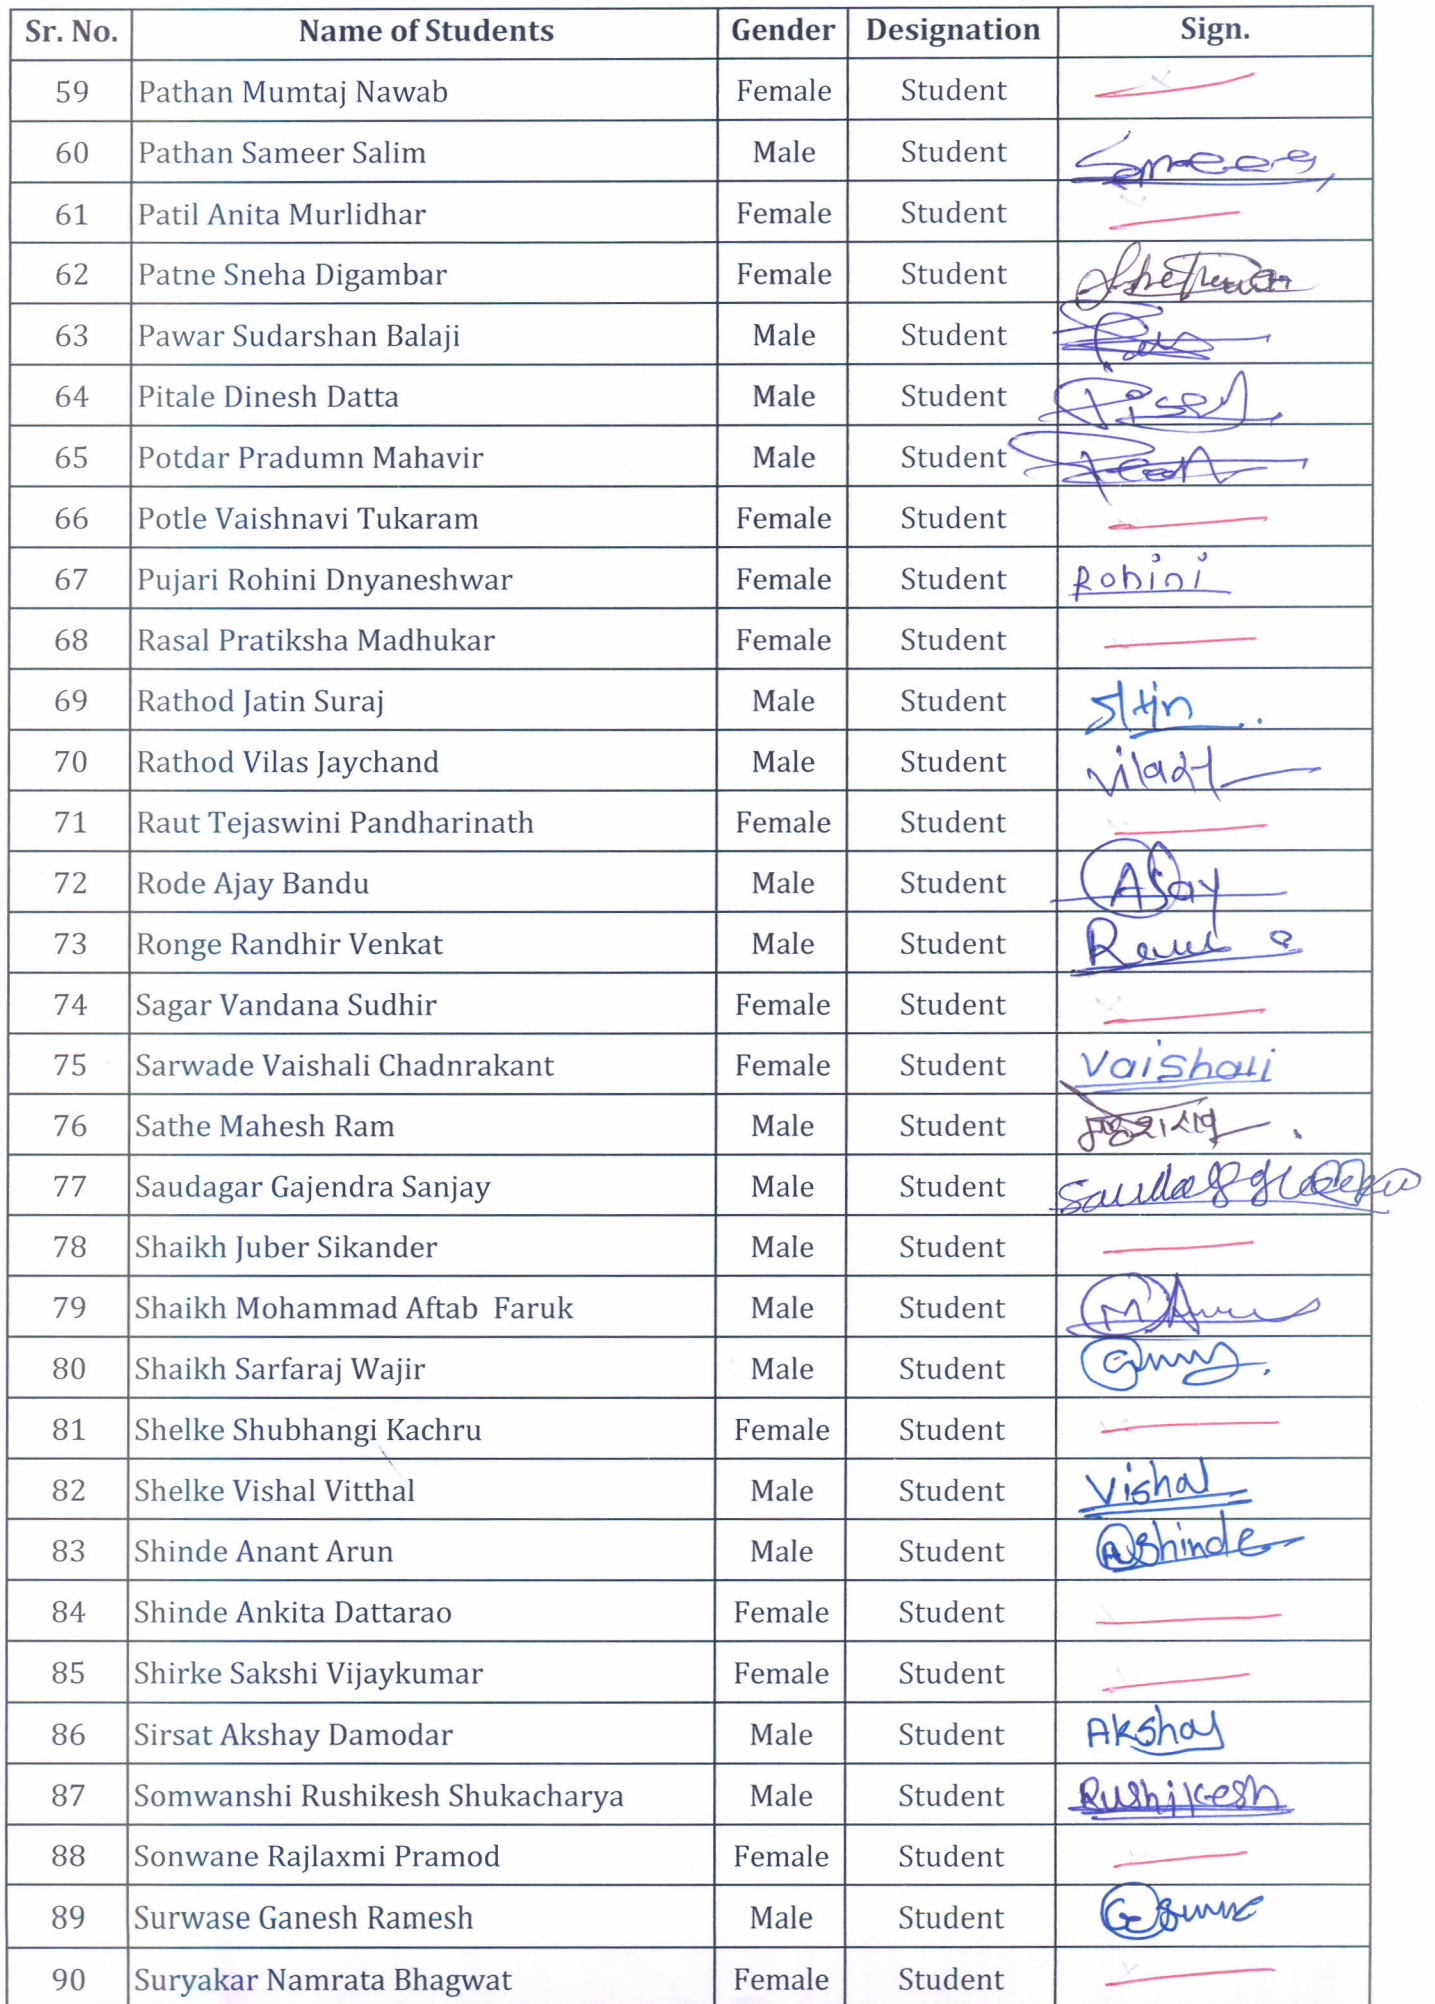 Sr. No. Name of Students Gender Designation Sign.
59 Pathan Mumtaj Nawab Female Student
60 Pathan Sameer Salim Male Student Sameer
61 Patil Anita Murlidhar Female Student
62 Patne Sneha Digambar Female Student
63 Pawar Sudarshan Balaji Male Student
64 Pitale Dinesh Datta Male Student
65 Potdar Pradumn Mahavir Male Student
66 Potle Vaishnavi Tukaram Female Student
67 Pujari Rohini Dnyaneshwar Female Student Rohini
68 Rasal Pratiksha Madhukar Female Student
69 Rathod Jatin Suraj Male Student
70 Rathod Vilas Jaychand Male Student
71 Raut Tejaswini Pandharinath Female Student
72 Rode Ajay Bandu Male Student Ajay
73 Ronge Randhir Venkat Male Student
74 Sagar Vandana Sudhir Female Student
75 Sarwade Vaishali Chadnrakant Female Student Vaishali
76 Sathe Mahesh Ram Male Student
77 Saudagar Gajendra Sanjay Male Student
78 Shaikh Juber Sikander Male Student
79 Shaikh Mohammad Aftab Faruk Male Student
80 Shaikh Sarfaraj Wajir Male Student
81 Shelke Shubhangi Kachru Female Student
82 Shelke Vishal Vitthal Male Student Vishal
83 Shinde Anant Arun Male Student AShinde
84 Shinde Ankita Dattarao Female Student
85 Shirke Sakshi Vijaykumar Female Student
86 Sirsat Akshay Damodar Male Student Akshay
87 Somwanshi Rushikesh Shukacharya Male Student Rushikesh
88 Sonwane Rajlaxmi Pramod Female Student
89 Surwase Ganesh Ramesh Male Student
90 Suryakar Namrata Bhagwat Female Student